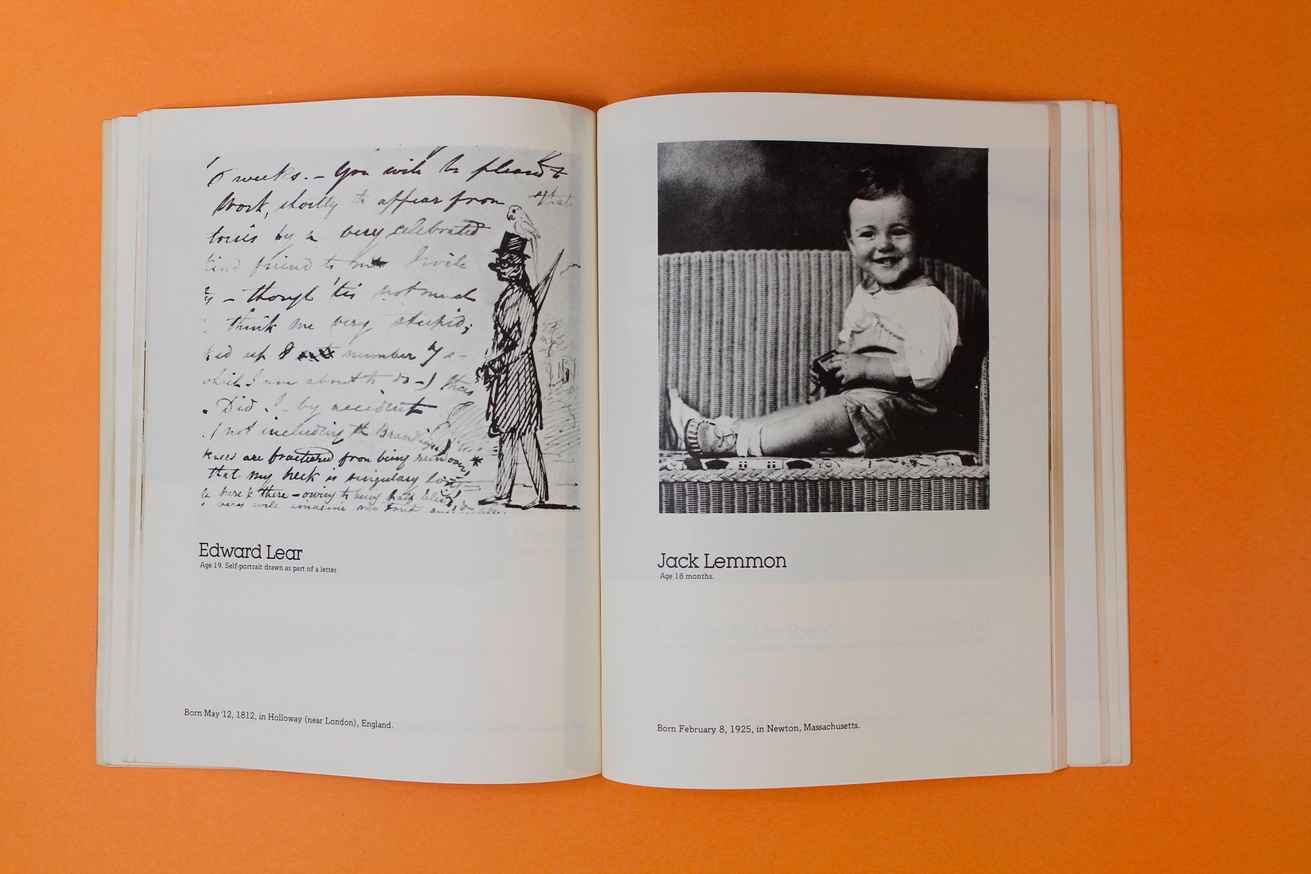 6 weeks. – You will be pleased to
Work, shortly to appear from
by a very celebrated
kind friend to
– though 'tis not much
think me very stupid;
up number 7 s –
which I am about to do – I
Did I – by accident
/ not including the
knees are fractured from being
that my neck is singularly
here & there – owing to being
very will imagine
Edward Lear
Age 19. Self-portrait drawn as part of a letter.
Born May 12, 1812, in Holloway (near London), England.
Jack Lemmon
Age 18 months.
Born February 8, 1925, in Newton, Massachusetts.